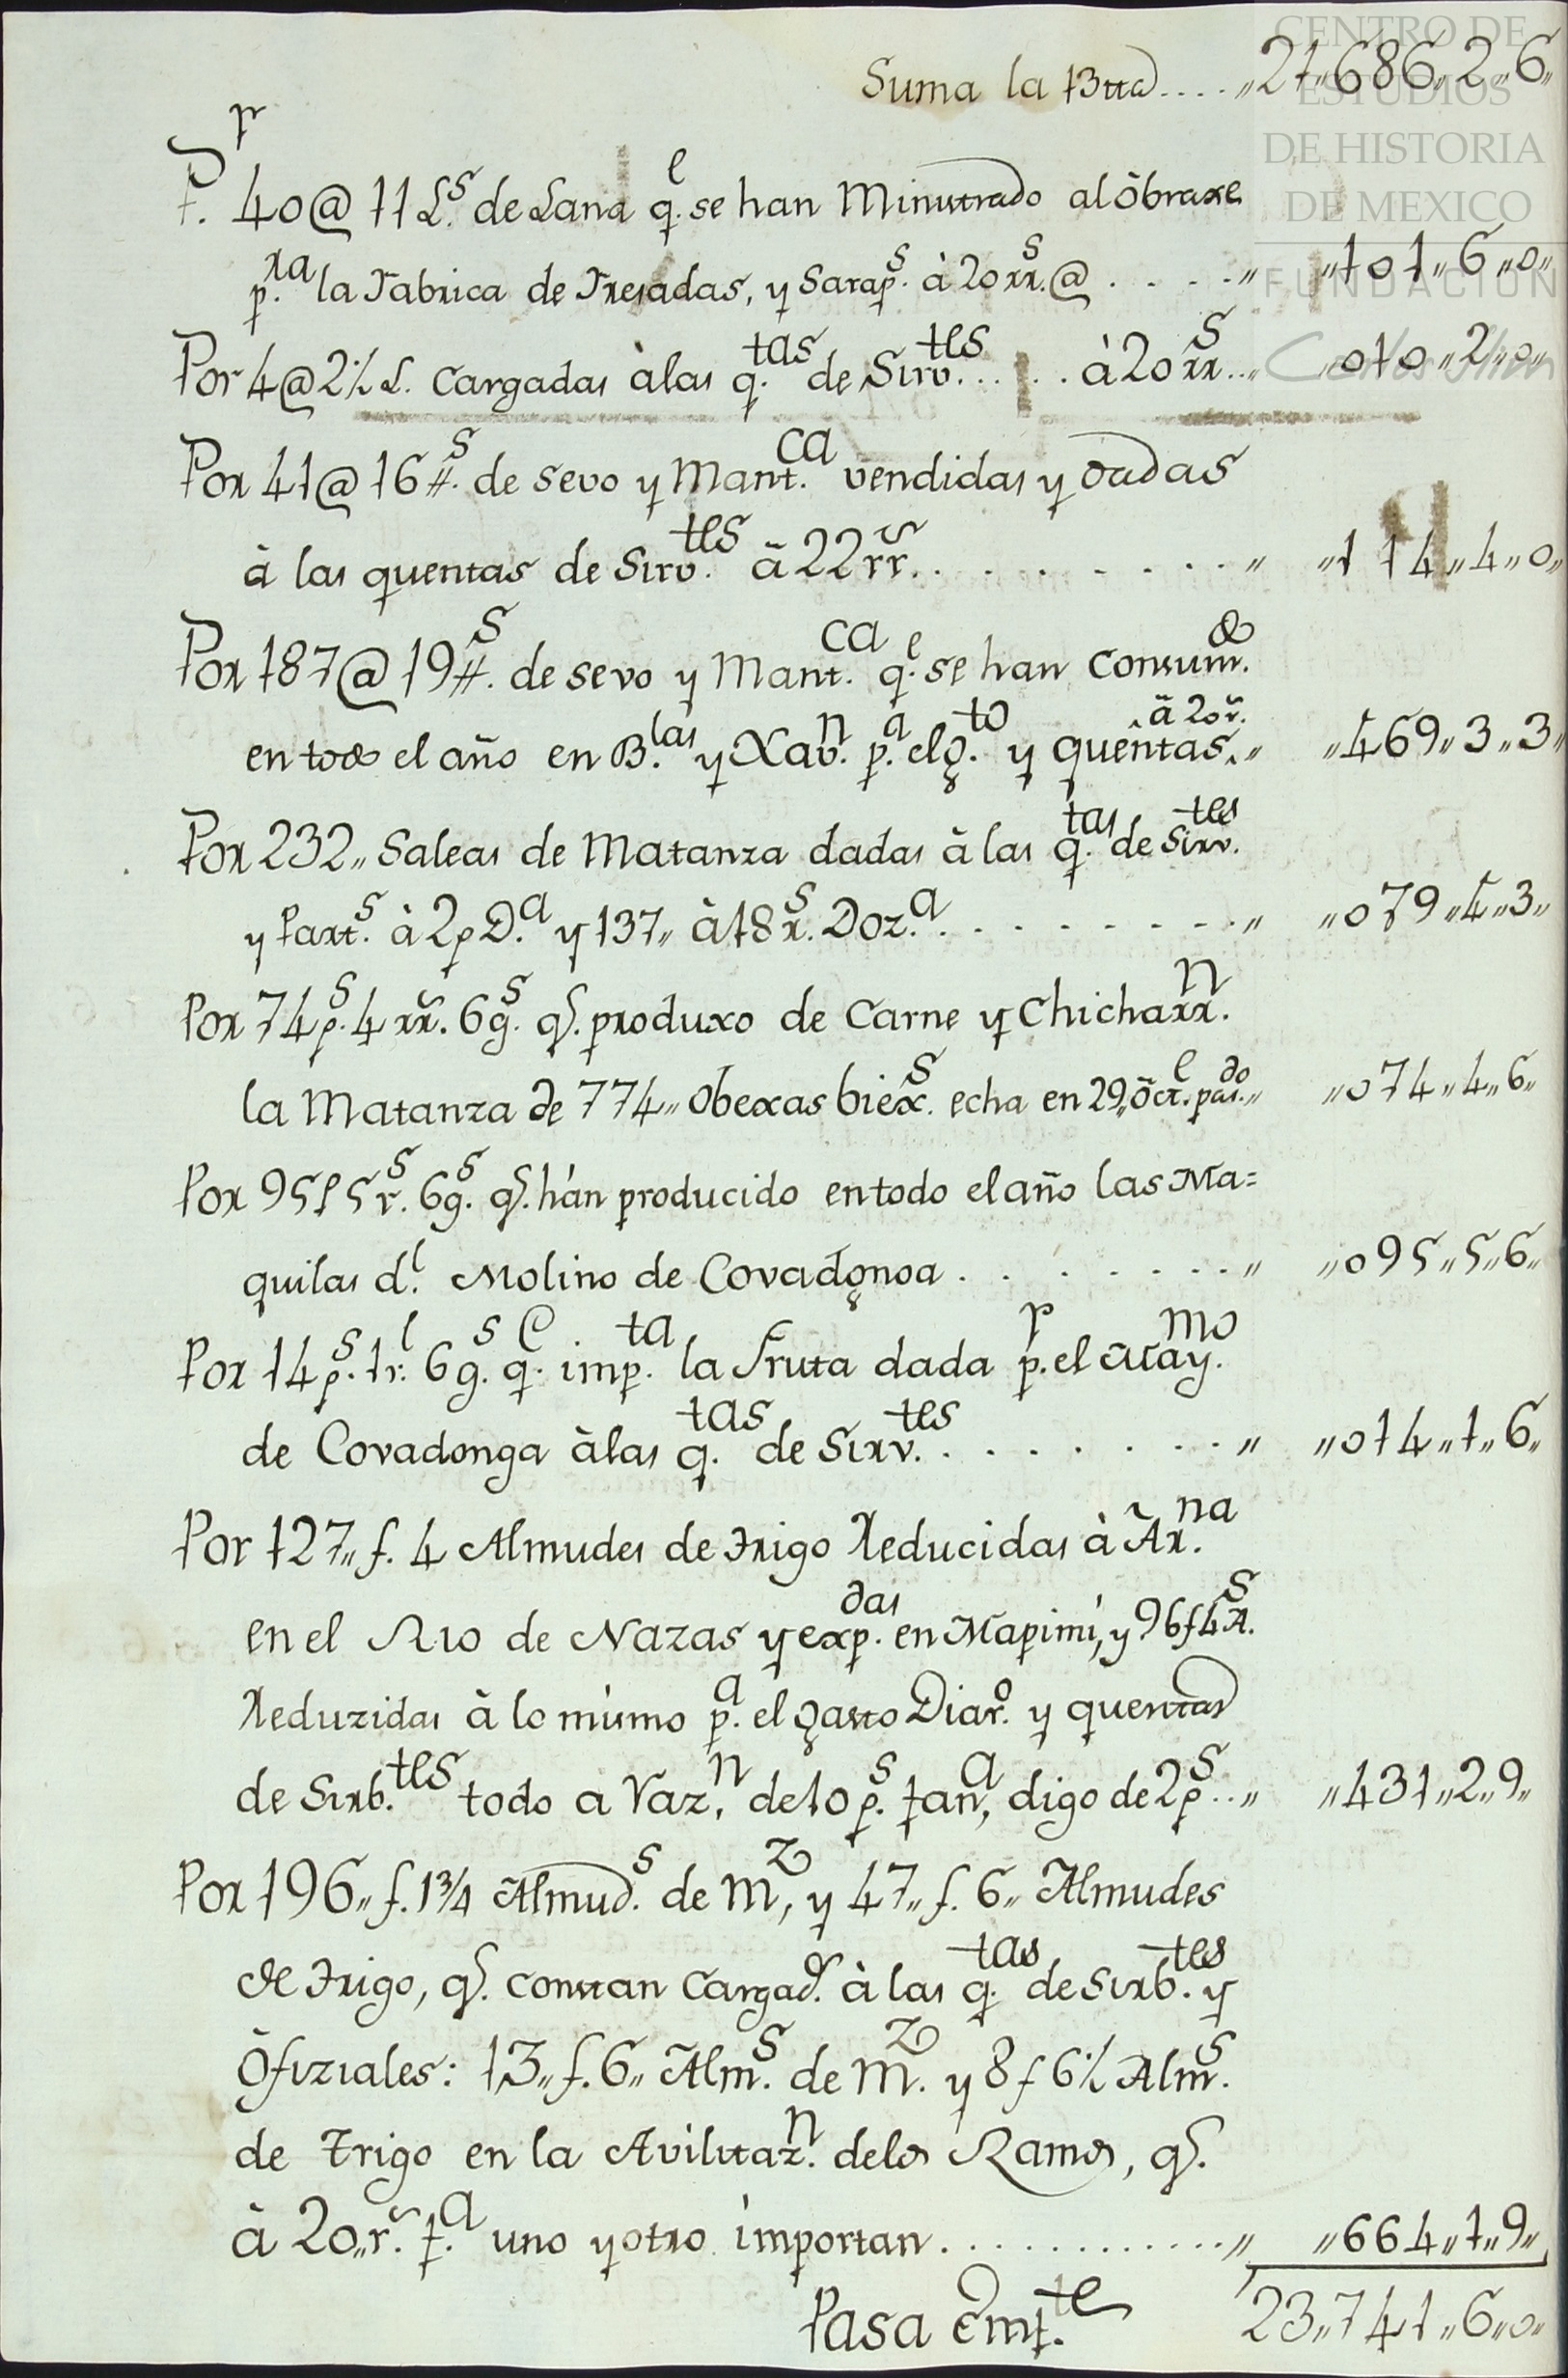 Suma la Btta.... „21„686„2„6„
P.r 40@ 11 L.s de Lana q.e se han Ministrado al obraxe
p.ra la Fabrica de Fresadas, y Sarap.s à 20 rr.s @ . . . . „ „101„6„0„
Por 4@ 2½ L. Cargadas à las q.tas de Sirv.tes . . . à 20 rr.s .. „ 010„2„0„
Por 41@ 16 #.s de sevo y Mant.ca vendidas y dadas
à las quentas de Sirv.tes à 22 rr.s . . . . . . . . „ „114„4„0„
Por 187@ 19 #.s de sevo y Mant.ca q.e se han Consum.do
en todo el año en B.las y Xav.n p.a el g.to y quentas à 20 r.s „ „469„3„3„
Por 232„ Saleas de Matanza dadas à las q.tas de Sirv.tes
y Part.s à 2 p D.a y 137„ à 18 r.s Doz.a . . . . . . . . „ „079„4„3„
Por 74 p.s 4 rr.s 6 g.s q.e produxo de Carne y Chicharr.n
la Matanza de 774„ Obexas biex.s echa en 29„ Oct.e pas.do „ „074„4„6„
Por 95 p 5 r.s 6 g.s q.e hán producido en todo el año las Ma=
quilas d.l Molino de Covadonga . . . . . . . . „ „095„5„6„
Por 14 p.s 1 r.l 6 g.s q.e imp.ta la Fruta dada p.r el May.mo
de Covadonga à las q.tas de Sirv.tes . . . . . . . . „ „014„1„6„
Por 127„ f. 4 Almudes de Trigo Reducidas à Ar.na
en el Rio de Nazas y exp.das en Mapimí, y 96 f 4 A.s
Reduzidas à lo mismo p.a el gasto Diar.o y quentas
de Sirb.tes todo a Raz.n de 10 p.s fan.a, digo de 2 p.s .. „ „431„2„9„
Por 196„ f. 1¾ Almud.s de M.z, y 47„ f. 6„ Almudes
de Trigo, q.e constan Cargad.s à las q.tas de Sirb.tes y
Ofiziales: 13„ f. 6„ Alm.s de M.z y 8 f 6½ Alm.s
de Trigo en la Avilitaz.n de los Ramos, q.e
à 20„ r.s f.a uno y otro importan . . . . . . . . . . . . „ „664„1„9„
Pasa Enf.te 23„741„6„0„
CENTRO DE
ESTUDIOS
DE HISTORIA
DE MEXICO
FUNDACIÓN
Carlos Slim